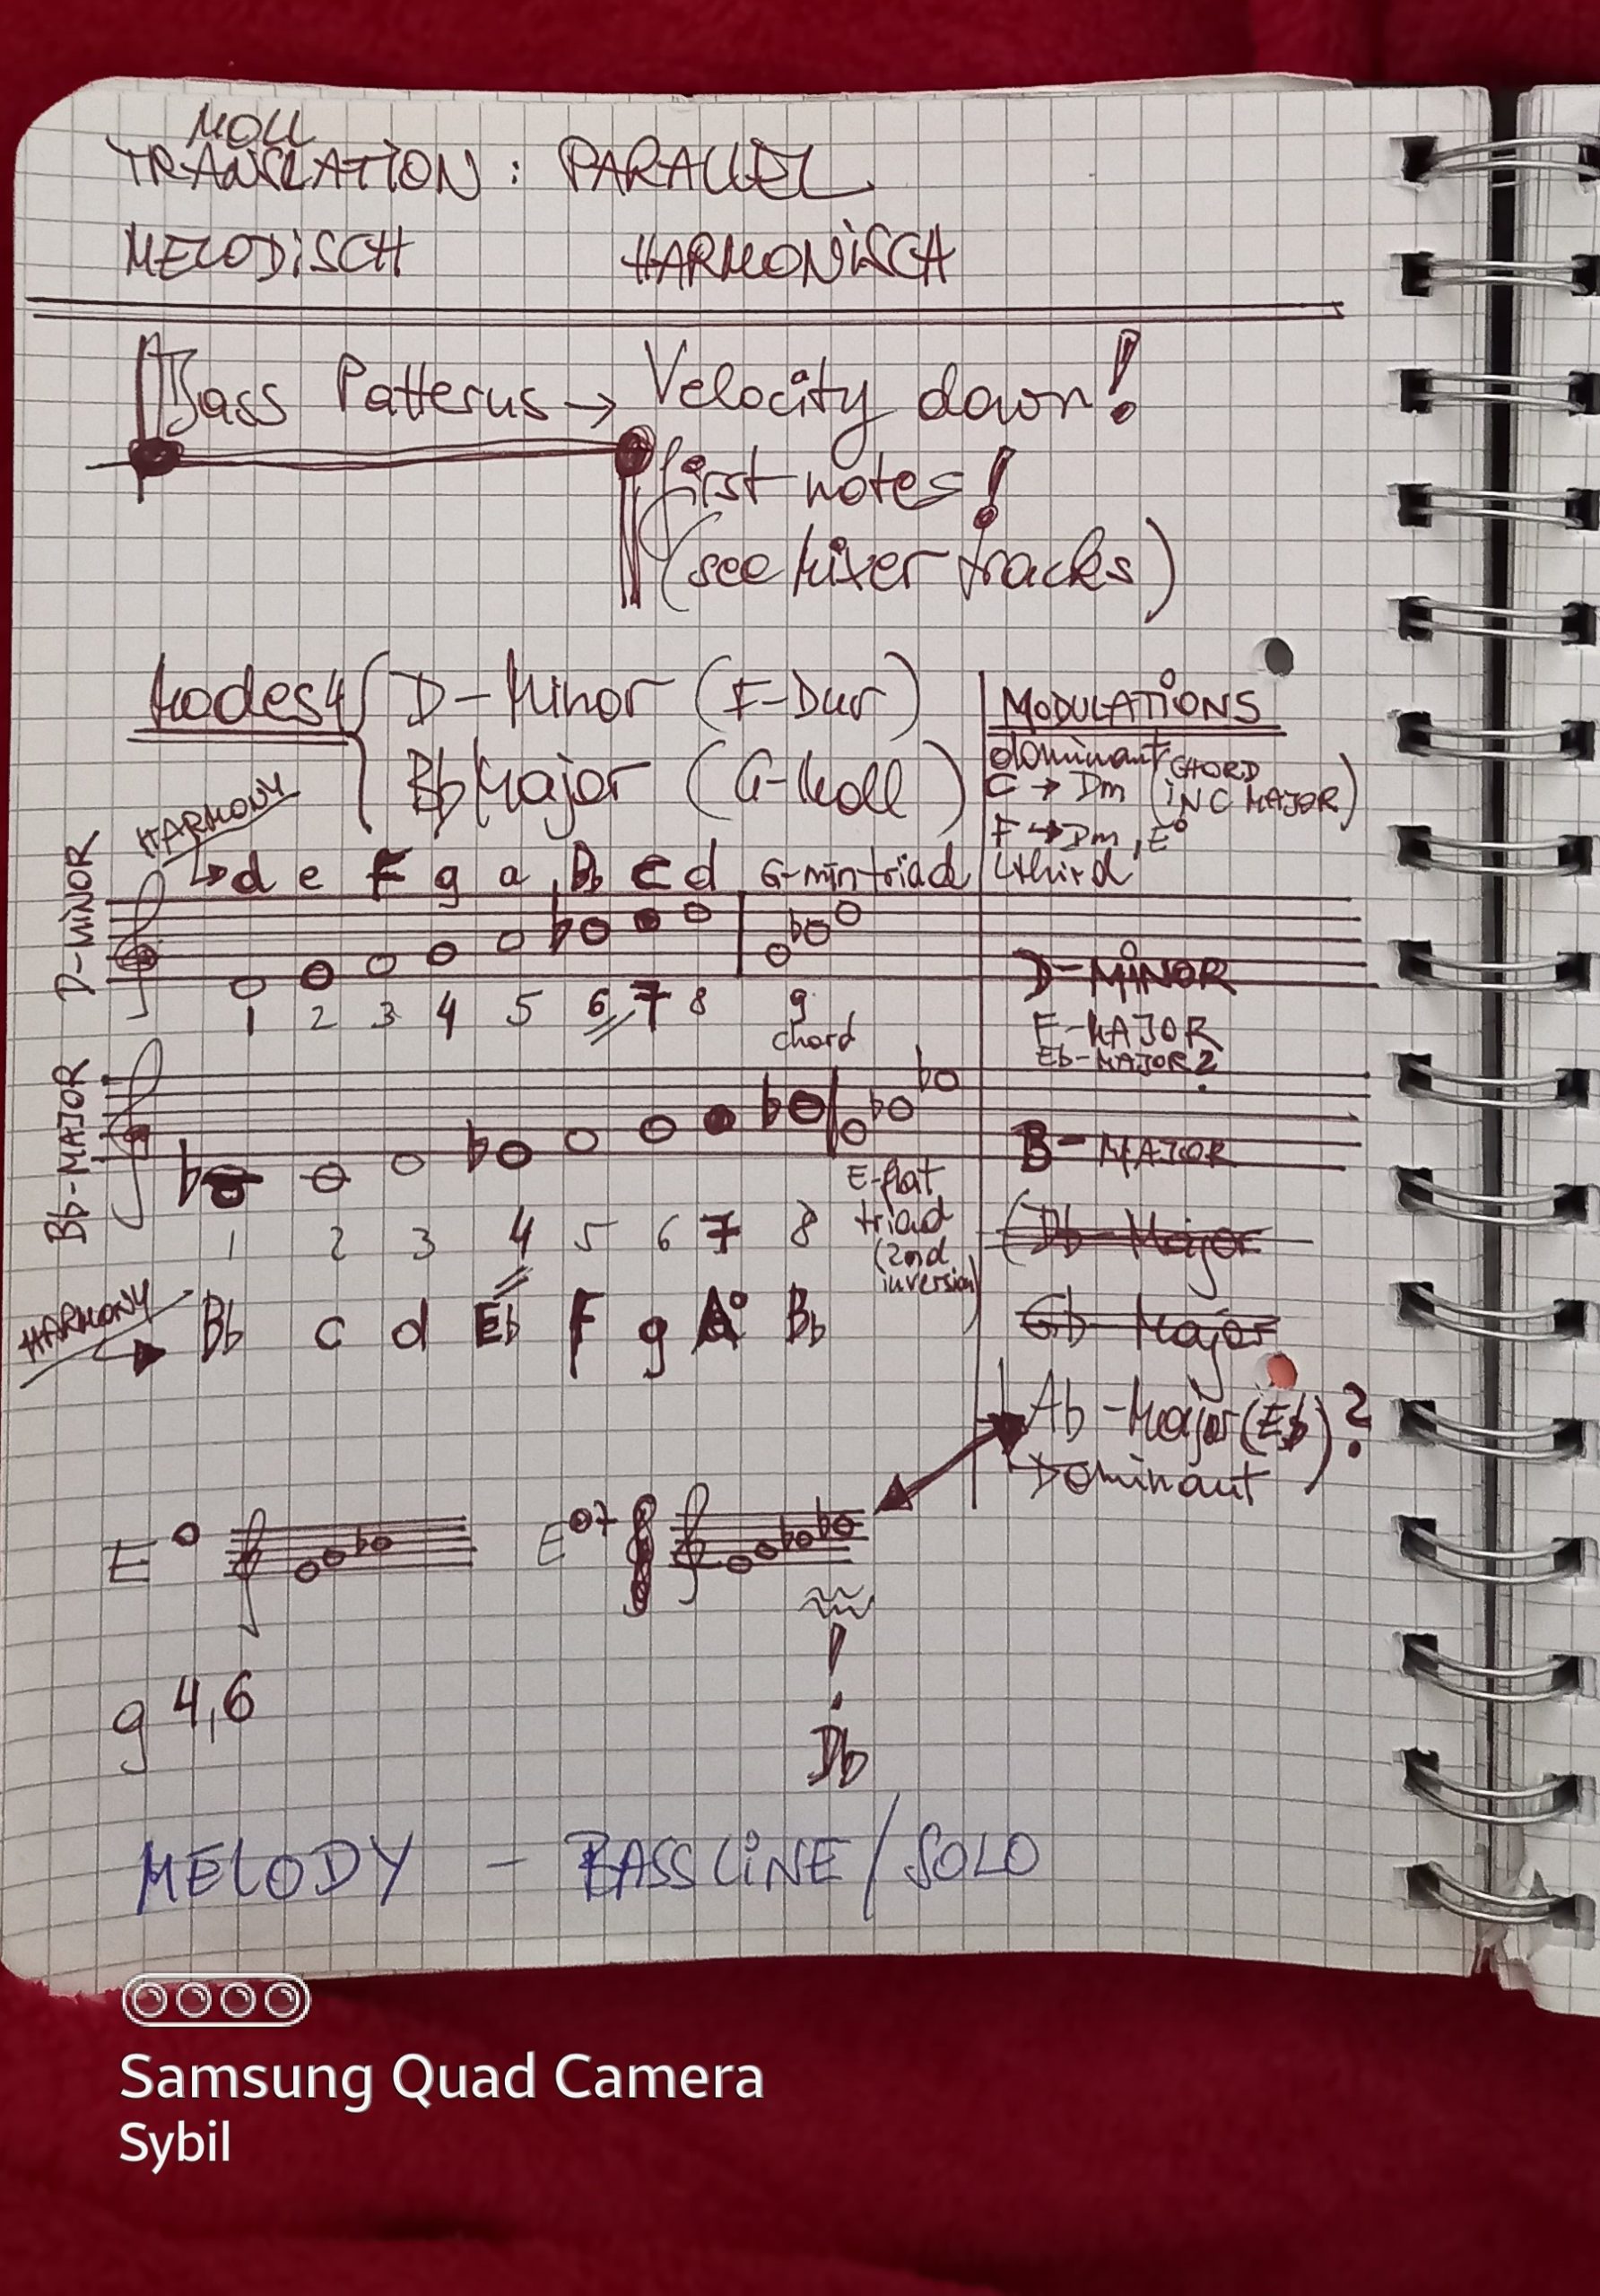 MOLL
TRANSLATION: PARALLEL
MELODiSCH HARMONiSCH
Bass Patterns → Velocity down!
first notes!
(see Mixer tracks)
Modes 4 { D-Minor (F-Dur)
Bb Major (G-Moll)
MODULATiONS
dominant CHORD
C → Dm (iN C MAJOR)
F → Dm, E°
third
HARMONY
d e F g a Bb C d G-min triad
D-MiNOR
1 2 3 4 5 6 7 8 g
chord
D-MiNOR
F-MAJOR
Eb-MAJOR?
Bb-MAJOR
B-MAJOR
E-flat
triad
(2nd
inversion)
1 2 3 4 5 6 7 8
(Db-Major
Gb-Major
HARMONY
Bb c d Eb F g A° Bb
Ab-Major (Eb)?
Dominant
E° E°7
!
Db
g 4,6
MELODY - BASSLiNE/SOLO
Samsung Quad Camera
Sybil